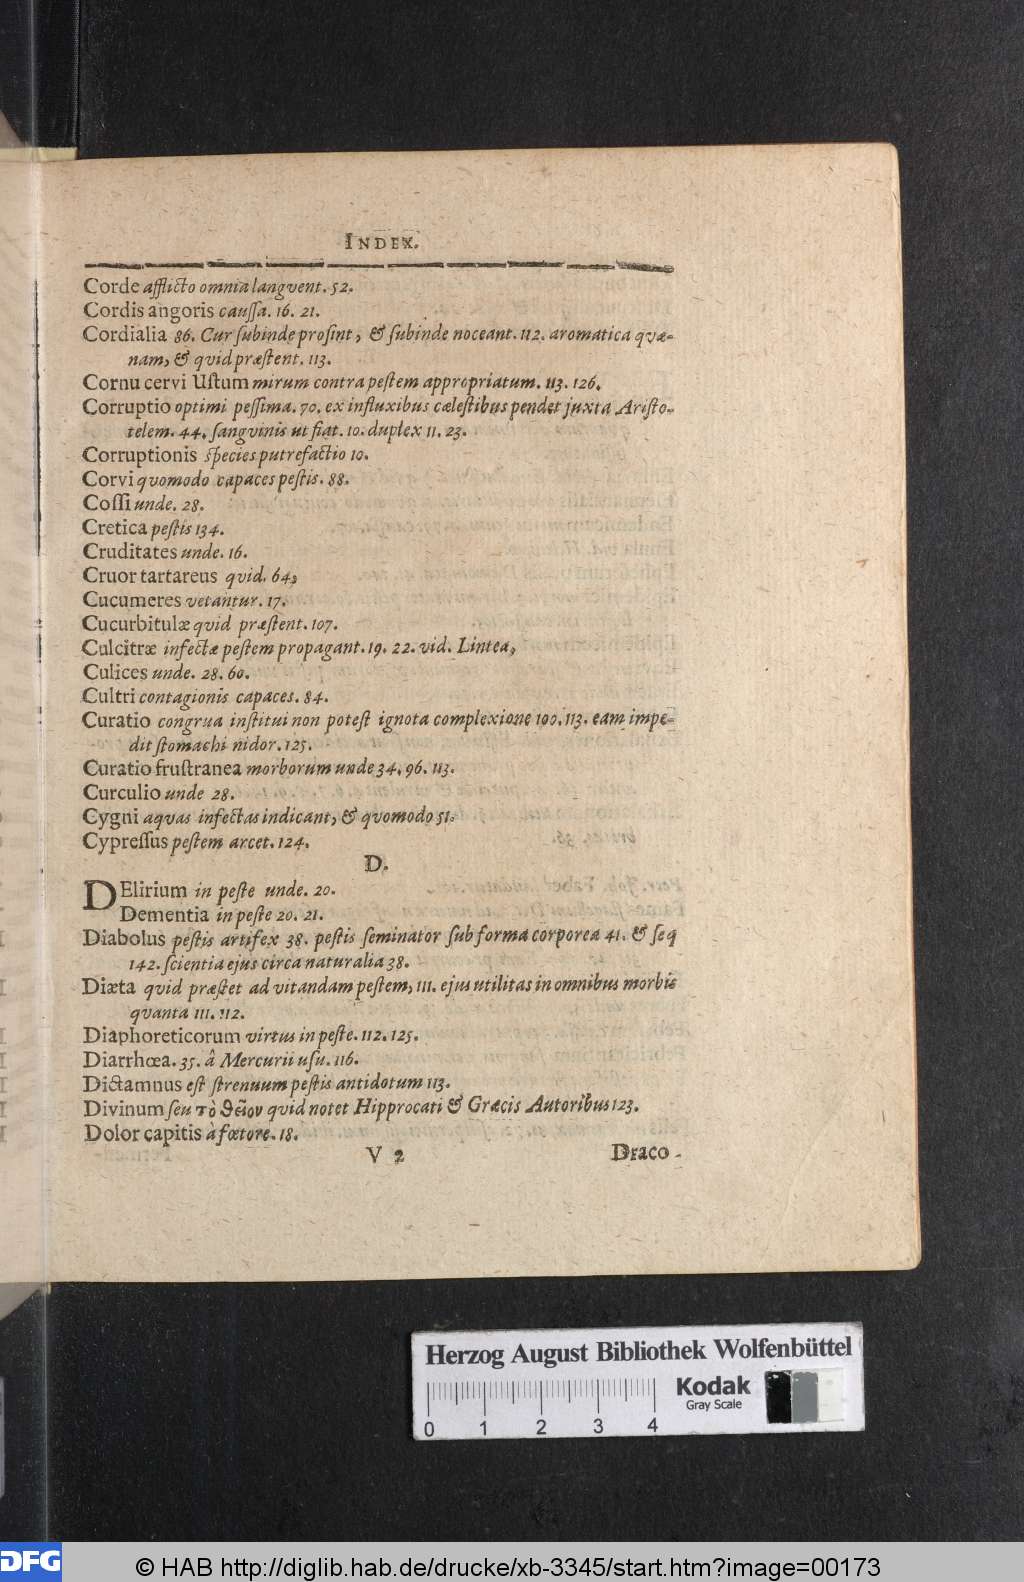 INDEX.
Corde afflicto omnia langvent. 52.
Cordis angoris caussa. 16. 21.
Cordialia 86. Cur subinde prosint, & subinde noceant. 112. aromatica qvæ-
nam, & qvid præstent. 113.
Cornu cervi Ustum mirum contra pestem appropriatum. 113. 126.
Corruptio optimi pessima. 70. ex influxibus cælestibus pendet juxta Aristo-
telem. 44. sangvinis ut fiat. 10. duplex 11. 23.
Corruptionis species putrefactio 10.
Corvi qvomodo capaces pestis. 88.
Cossi unde. 28.
Cretica pestis 134.
Cruditates unde. 16.
Cruor tartareus qvid. 64,
Cucumeres vetantur. 17.
Cucurbitulæ qvid præstent. 107.
Culcitræ infectæ pestem propagant. 19. 22. vid. Lintea,
Culices unde. 28. 60.
Cultri contagionis capaces. 84.
Curatio congrua institui non potest ignota complexione 100. 113. eam impe-
dit stomachi nidor. 125.
Curatio frustranea morborum unde 34. 96. 113.
Curculio unde 28.
Cygni aqvas infectas indicant, & qvomodo 51.
Cypressus pestem arcet. 124.
D.
DElirium in peste unde. 20.
Dementia in peste 20. 21.
Diabolus pestis artifex 38. pestis seminator sub forma corporea 41. & seq
142. scientia ejus circa naturalia 38.
Diæta qvid præstet ad vitandam pestem, 111. ejus utilitas in omnibus morbis
qvanta 111. 112.
Diaphoreticorum virtus in peste. 112. 125.
Diarrhœa. 35. â Mercurii usu. 116.
Dictamnus est strenuum pestis antidotum 113.
Divinum seu τὸ θεῖον quid notet Hipprocati & Græcis Autoribus 123.
Dolor capitis à fœtore. 18.
V 2 Draco-
Herzog August Bibliothek Wolfenbüttel
Kodak
Gray Scale
0 1 2 3 4
DFG
© HAB http://diglib.hab.de/drucke/xb-3345/start.htm?image=00173